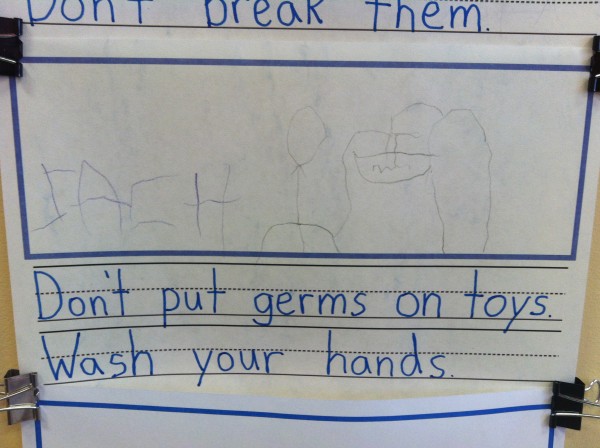 Don't break them.
Don't put germs on toys.
Wash your hands.